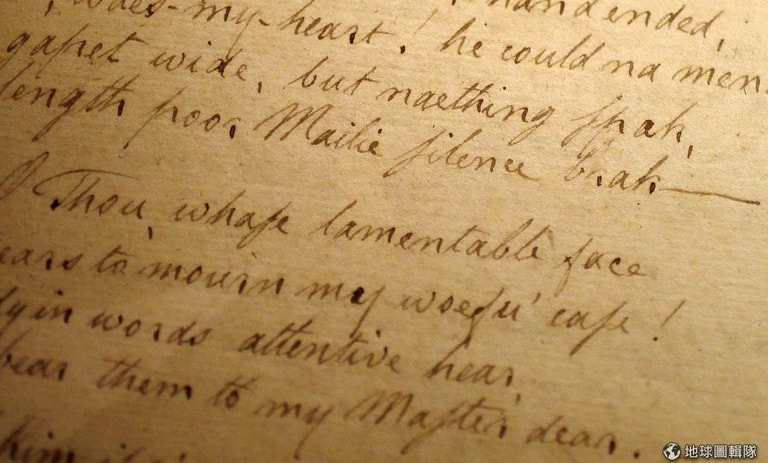 , waes-my-heart! he could na men
gapet wide, but naething spak,
length poor Mailie silence brak
O Thou, whase lamentable face
ears to mourn my woefu' case!
dyin words attentive hear,
bear them to my Master dear.
him
地球圖輯隊